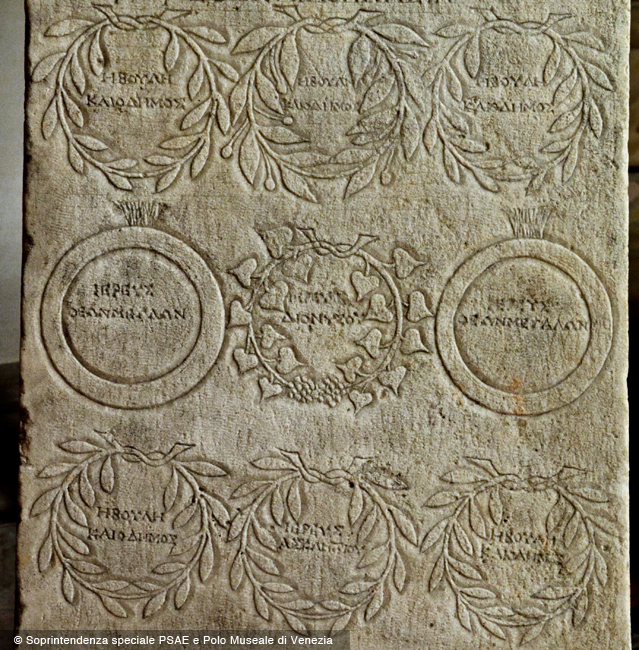 Η ΒΟΥΛΗ
ΚΑΙ Ο ΔΗΜΟΣ
Η ΒΟΥΛΗ
ΚΑΙ Ο ΔΗΜΟΣ
Η ΒΟΥΛΗ
ΚΑΙ Ο ΔΗΜΟΣ
ΙΕΡΕΥΣ
ΘΕΩΝ ΜΕΓΑΛΩΝ
ΙΕΡΕΥΣ
ΔΙΟΝΥΣΟΥ
ΙΕΡΕΥΣ
ΘΕΩΝ ΜΕΓΑΛΩΝ
Η ΒΟΥΛΗ
ΚΑΙ Ο ΔΗΜΟΣ
ΙΕΡΕΥΣ
ΑΣΚΛΗΠΙΟΥ
Η ΒΟΥΛΗ
ΚΑΙ Ο ΔΗΜΟΣ
© Soprintendenza speciale PSAE e Polo Museale di Venezia